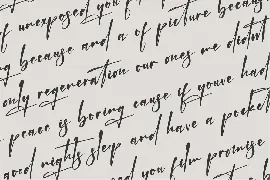 of unexposed you f
ng because and a of picture because
only regeneration our ones me
peace is boring cause if youve had
good nights slep and have a pocket
you film promise